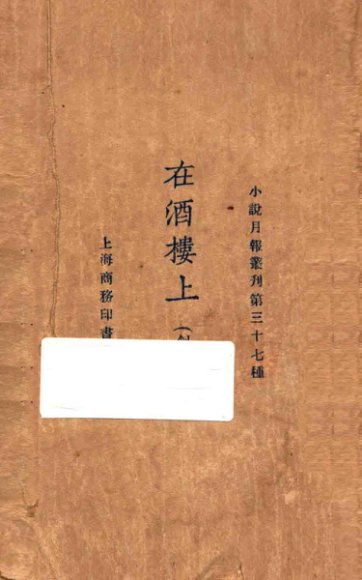 小說月報叢刊第三十七種
在酒樓上（
上海商務印書